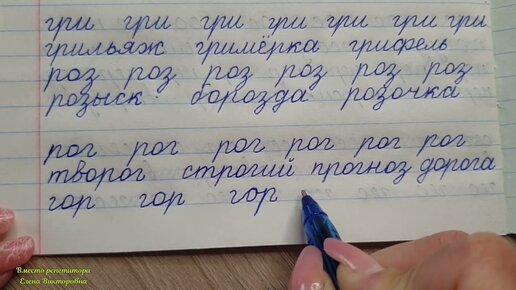 гри гри гри гри гри гри гри
грильяж гримёрка грифель
роз роз роз роз роз роз
розыск борозда розочка
рог рог рог рог рог рог
творог строгий прогноз дорога
гор гор гор
Вместо репетитора
Елена Викторовна